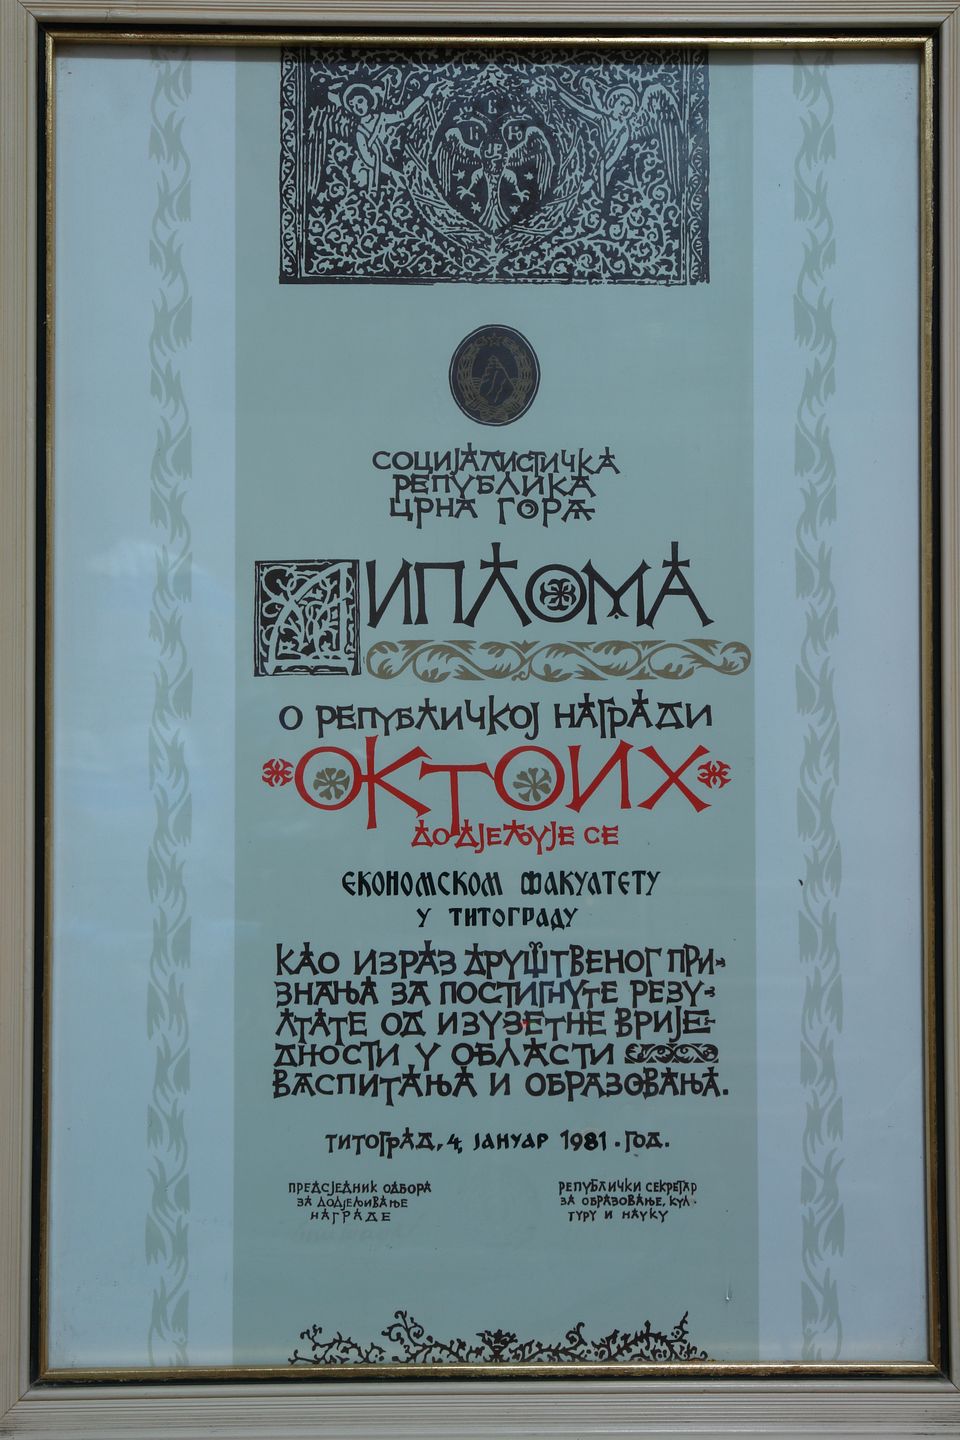 СОЦИЈАЛИСТИЧКА
РЕПУБЛИКА
ЦРНА ГОРА
ДИПЛОМА
О РЕПУБЛИЧКОЈ НАГРАДИ
ОКТОИХ
ДОДЈЕЉУЈЕ СЕ
ЕКОНОМСКОМ ФАКУЛТЕТУ
У ТИТОГРАДУ
КАО ИЗРАЗ ДРУШТВЕНОГ ПРИ-
ЗНАЊА ЗА ПОСТИГНУТЕ РЕЗУ-
ЛТАТЕ ОД ИЗУЗЕТНЕ ВРИЈЕ-
ДНОСТИ У ОБЛАСТИ
ВАСПИТАЊА И ОБРАЗОВАЊА.
ТИТОГРАД, 4, ЈАНУАР 1981. ГОД.
ПРЕДСЈЕДНИК ОДБОРА
ЗА ДОДЈЕЉИВАЊЕ
НАГРАДЕ
РЕПУБЛИЧКИ СЕКРЕТАР
ЗА ОБРАЗОВАЊЕ, КУЛ-
ТУРУ И НАУКУ